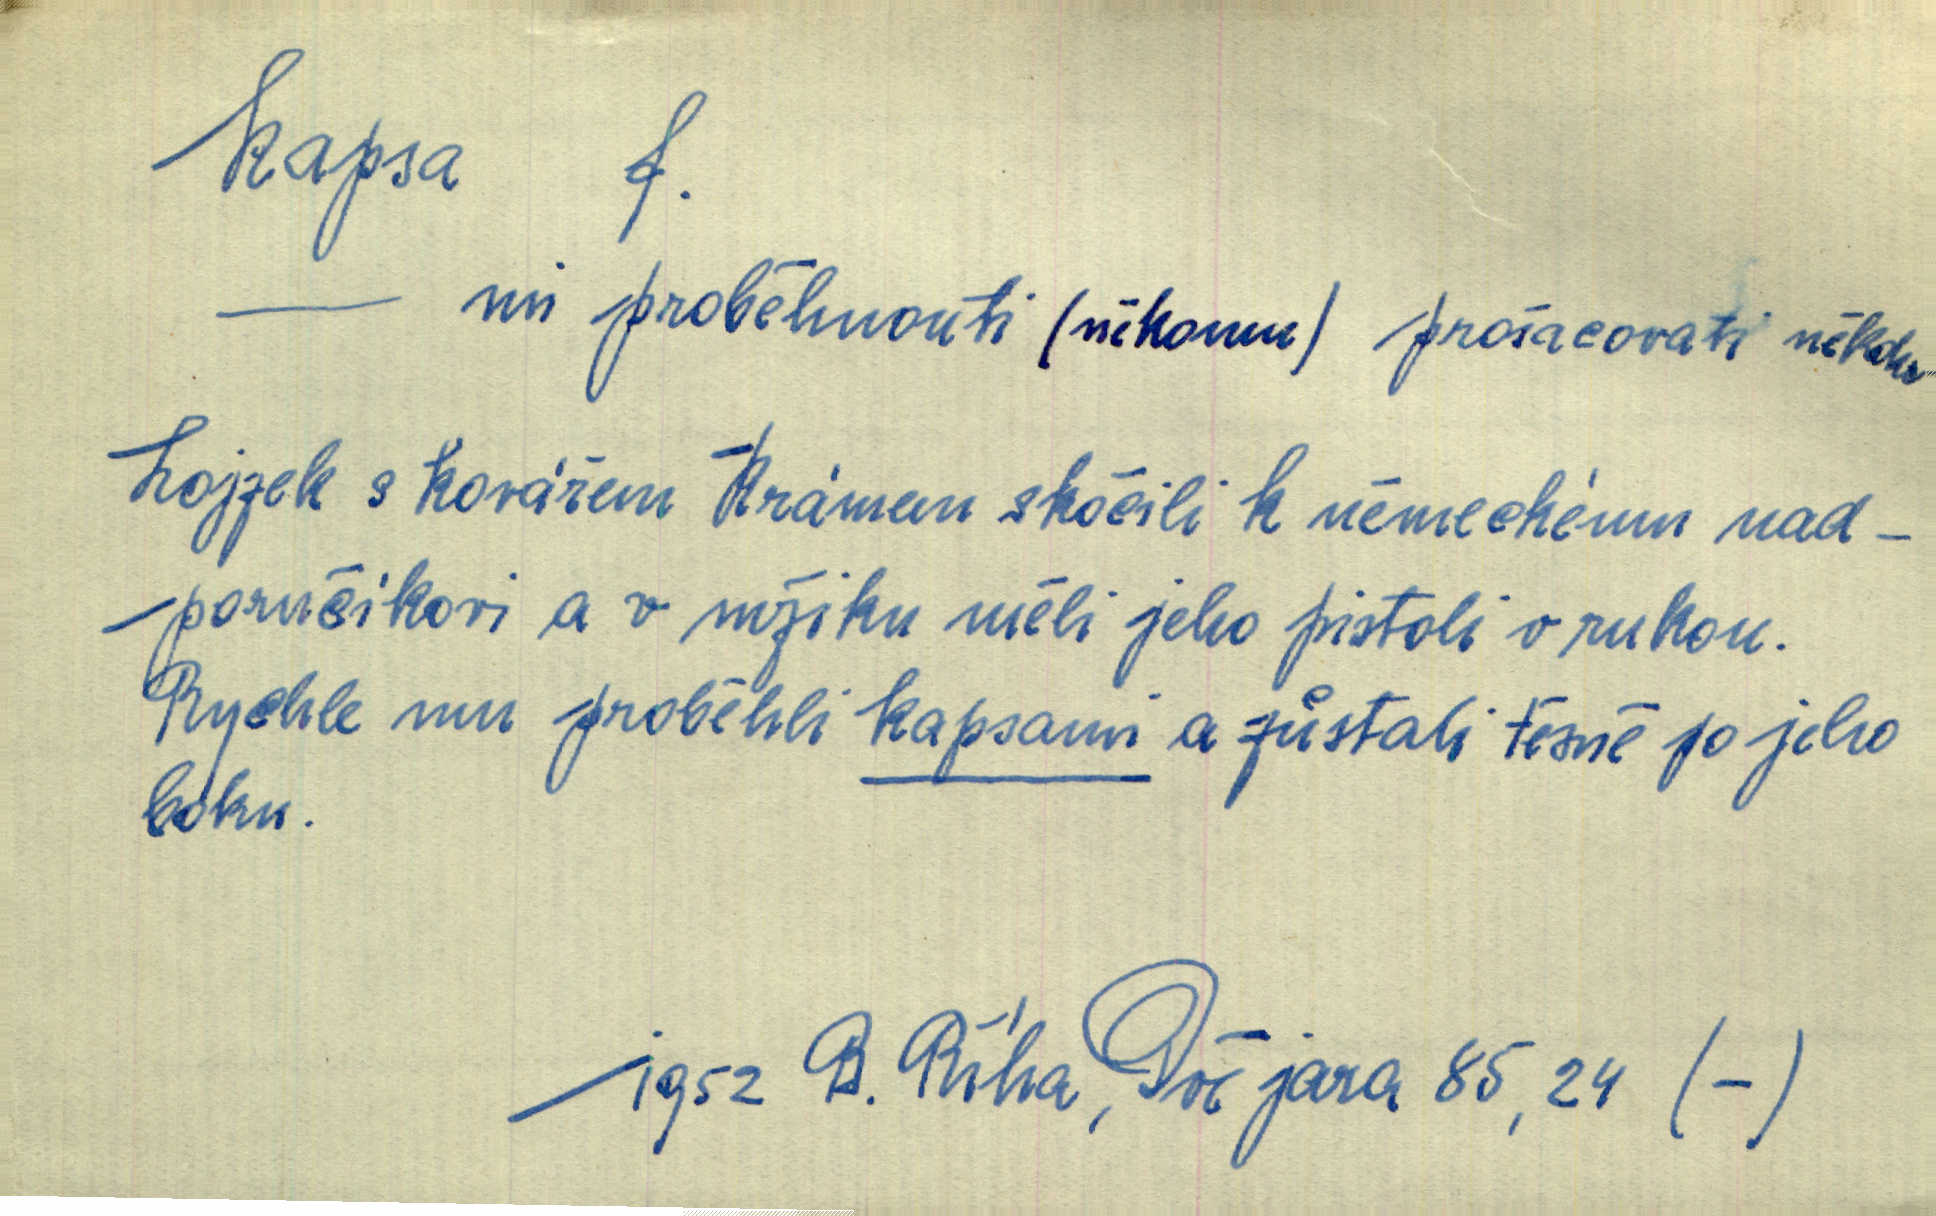 Kapsa f.
— mi proběhnouti (někomu) prošacovati někoho
Lojzek s kovářem Krámem skočili k německému nad-
poručíkovi a v mžiku měli jeho pistoli v rukou.
Rychle mu proběhli kapsami a zůstali těsně po jeho
boku.
1952 B. Říha, Dvě jara 85, 24 (-)